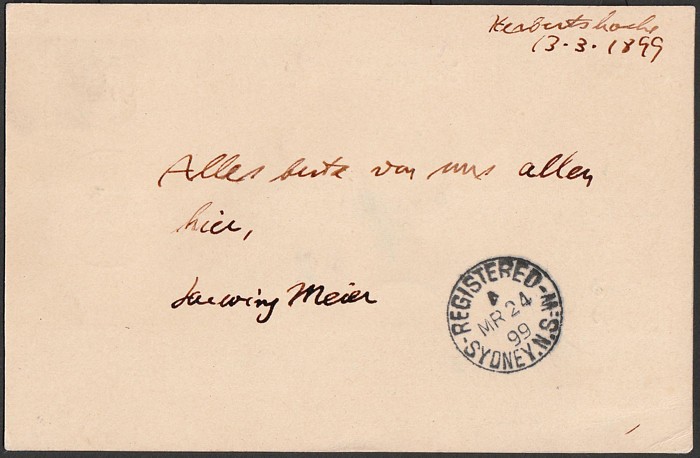 Herbertshöhe
13.3.1899
Alles beste von uns allen
hier,
Meier
REGISTERED-M.S.
MR 24
99
-SYDNEY.N.S.